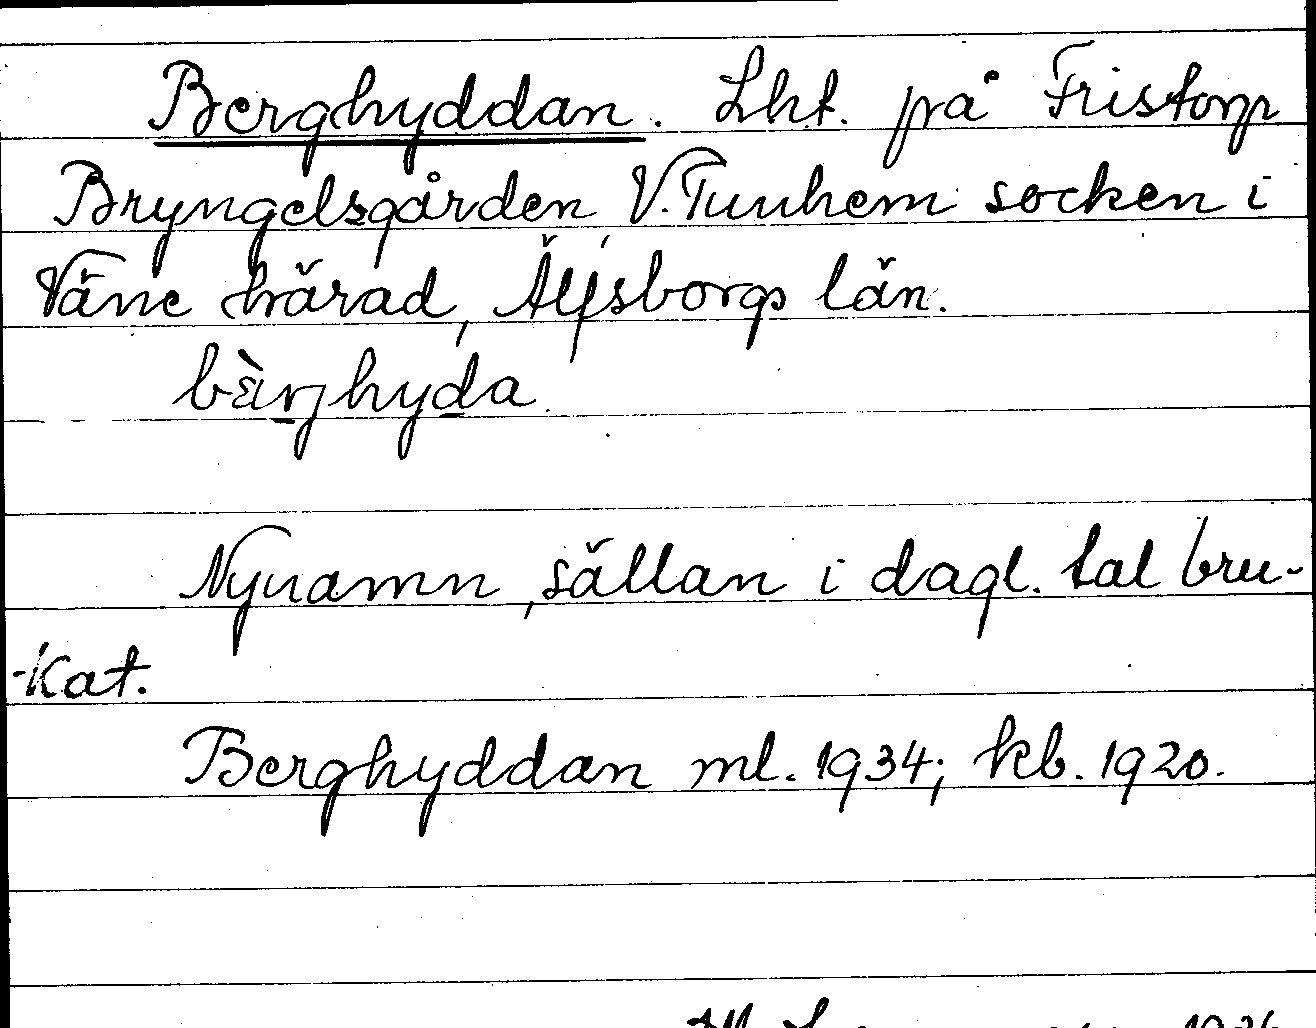 Berghyddan. Lht. på Fristorp
Bryngelsgården V. Tunhem socken i
Väne härad, Älfsborgs län.
bὲrjhyda
Nynamn, sällan i dagl. tal bru-
-kat.
Berghyddan ml. 1934; kb. 1920.